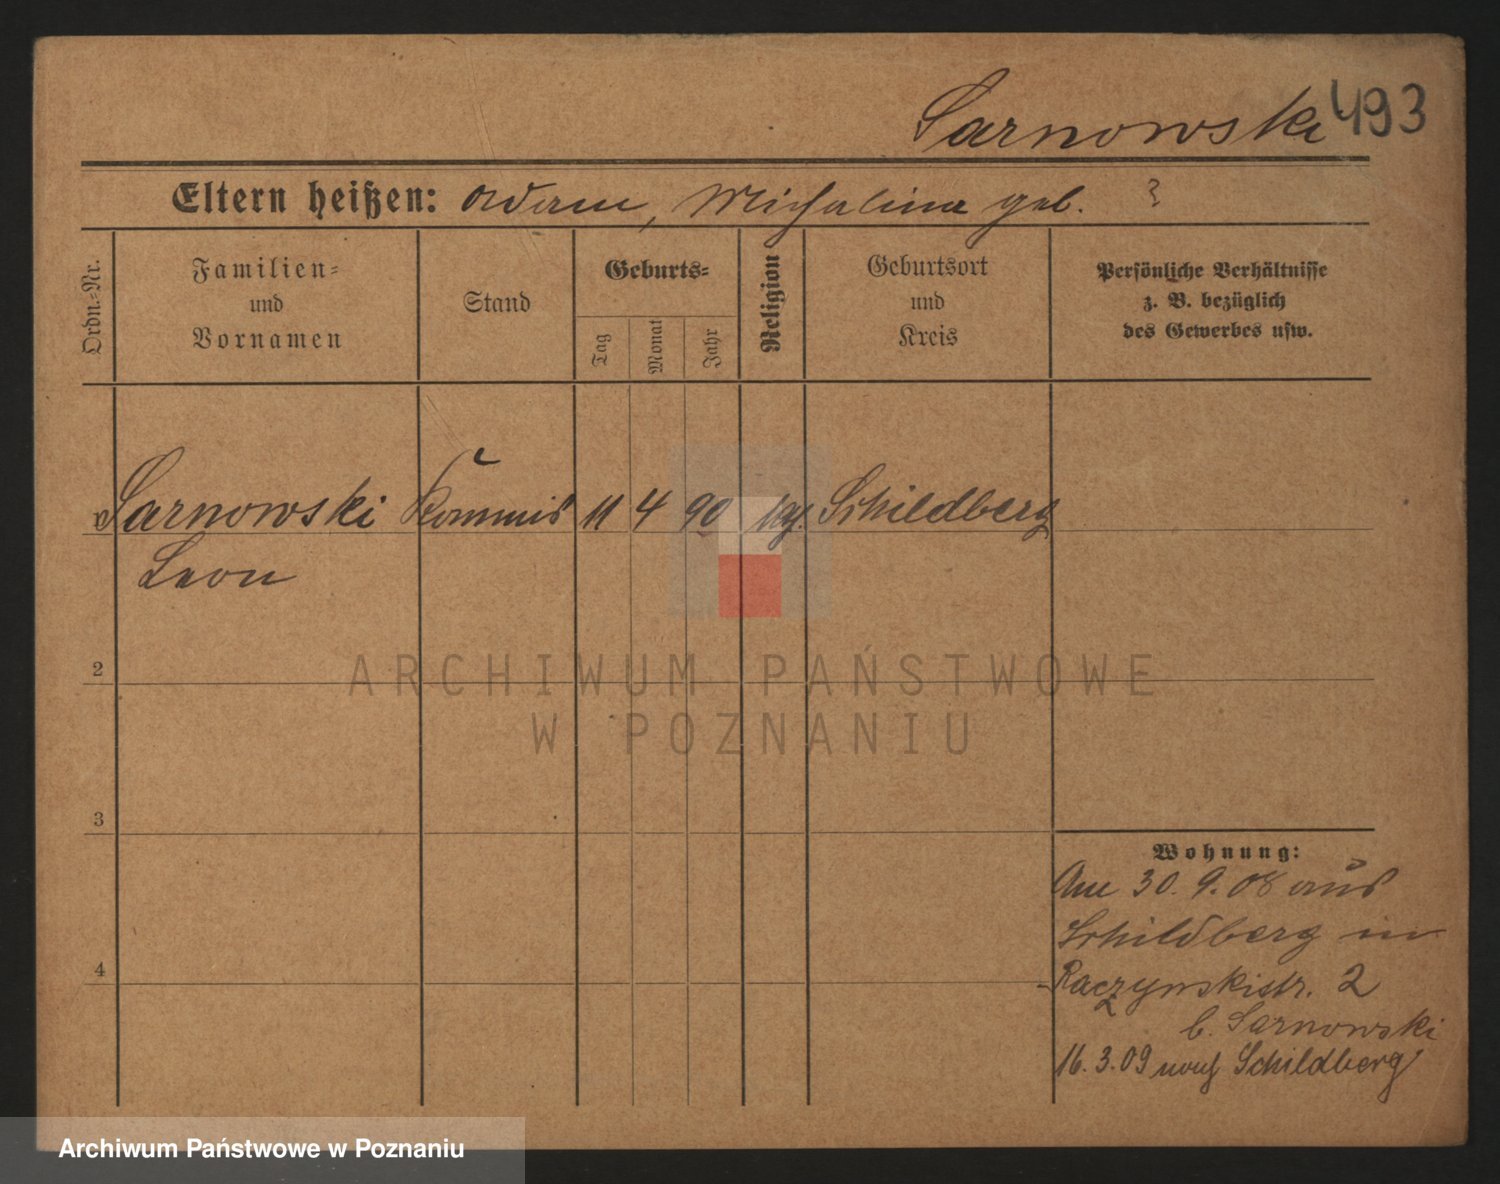 Sarnowski 493
Eltern heißen: Adam, Michalina geb. ?
Ordn.-Nr.
Familien-
und
Vornamen
Stand
Geburts-
Tag
Monat
Jahr
Religion
Geburtsort
und
Kreis
Persönliche Verhältnisse
z. B. bezüglich
des Gewerbes usw.
Sarnowski Kommis 11 4 90 kg. Schildberg
Leon
2
3
4
Wohnung:
Am 30.9.08 aus
Schildberg in
Raczynskistr. 2
b. Sarnowski
16.3.09 nach Schildberg
ARCHIWUM PAŃSTWOWE
W POZNANIU
Archiwum Państwowe w Poznaniu